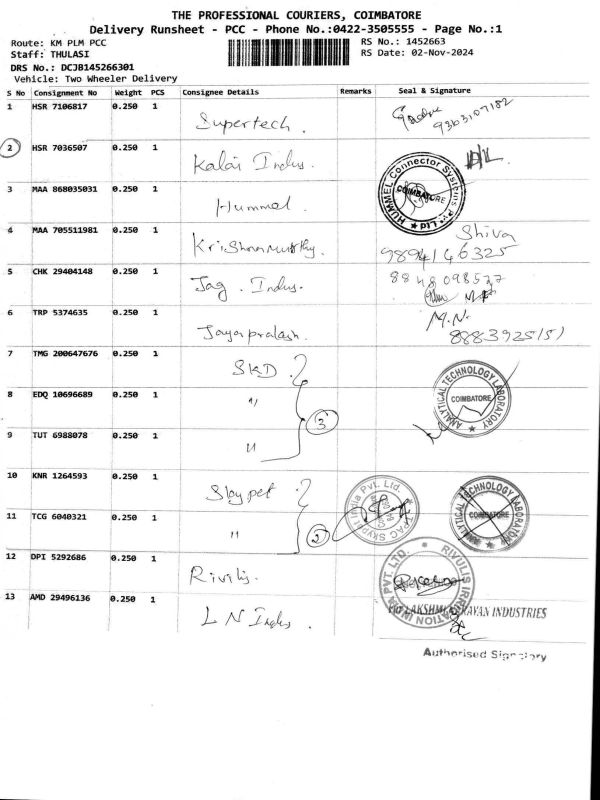 THE PROFESSIONAL COURIERS, COIMBATORE
Delivery Runsheet - PCC - Phone No.:0422-3505555 - Page No.:1
Route: KM PLM PCC
RS No.: 1452663
Staff: THULASI
RS Date: 02-Nov-2024
DRS No.: DCJB145266301
Vehicle: Two Wheeler Delivery
S No Consignment No Weight PCS Consignee Details Remarks Seal & Signature
1 HSR 7106817 0.250 1 Supertech. 9363107182
2 HSR 7036507 0.250 1 Kalai Indus.
3 MAA 868035031 0.250 1 Hummel HUMMEL Connector Systems Pvt Ltd COIMBATORE
4 MAA 705511981 0.250 1 Krishnamurthy. Shiva
9894146325
5 CHK 29404148 0.250 1 Jag. Indus. 8848098537
6 TRP 5374635 0.250 1 Jayaprakash. M.N.
8883925151
7 TMG 200647676 0.250 1 SKD
8 EDQ 10696689 0.250 1 " 3 ANALYTICAL TECHNOLOGY LABORATORY COIMBATORE
9 TUT 6988078 0.250 1 "
10 KNR 1264593 0.250 1 Skypet
11 TCG 6040321 0.250 1 " 2 PAC Skypet India Pvt. Ltd. ANALYTICAL TECHNOLOGY LABORATORY COIMBATORE
12 DPI 5292686 0.250 1 Rivulis. RIVULIS IRRIGATION INDIA PVT. LTD.
13 AMD 29496136 0.250 1 L N Indus. INDUSTRIES
Authorised Signatory